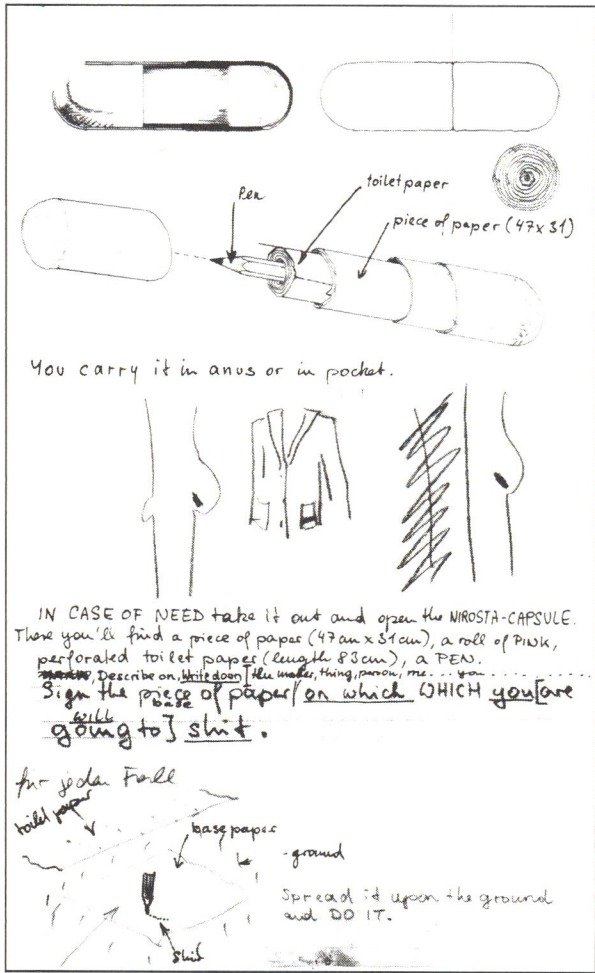 Pen
toilet paper
piece of paper (47x31)
You carry it in anus or in pocket.
IN CASE OF NEED take it out and open the NIROSTA-CAPSULE.
There you'll find a piece of paper (47cm x 31cm), a roll of PINK,
perforated toilet paper (length 83cm), a PEN.
, Describe on, Write down [the maker, thing, person, me... you..............
Sign the piece of paper/ on which WHICH you [are
base will
going to] shit.
für jeden Fall
toilet paper
base paper
ground
Spread it upon the ground
and DO IT.
shit